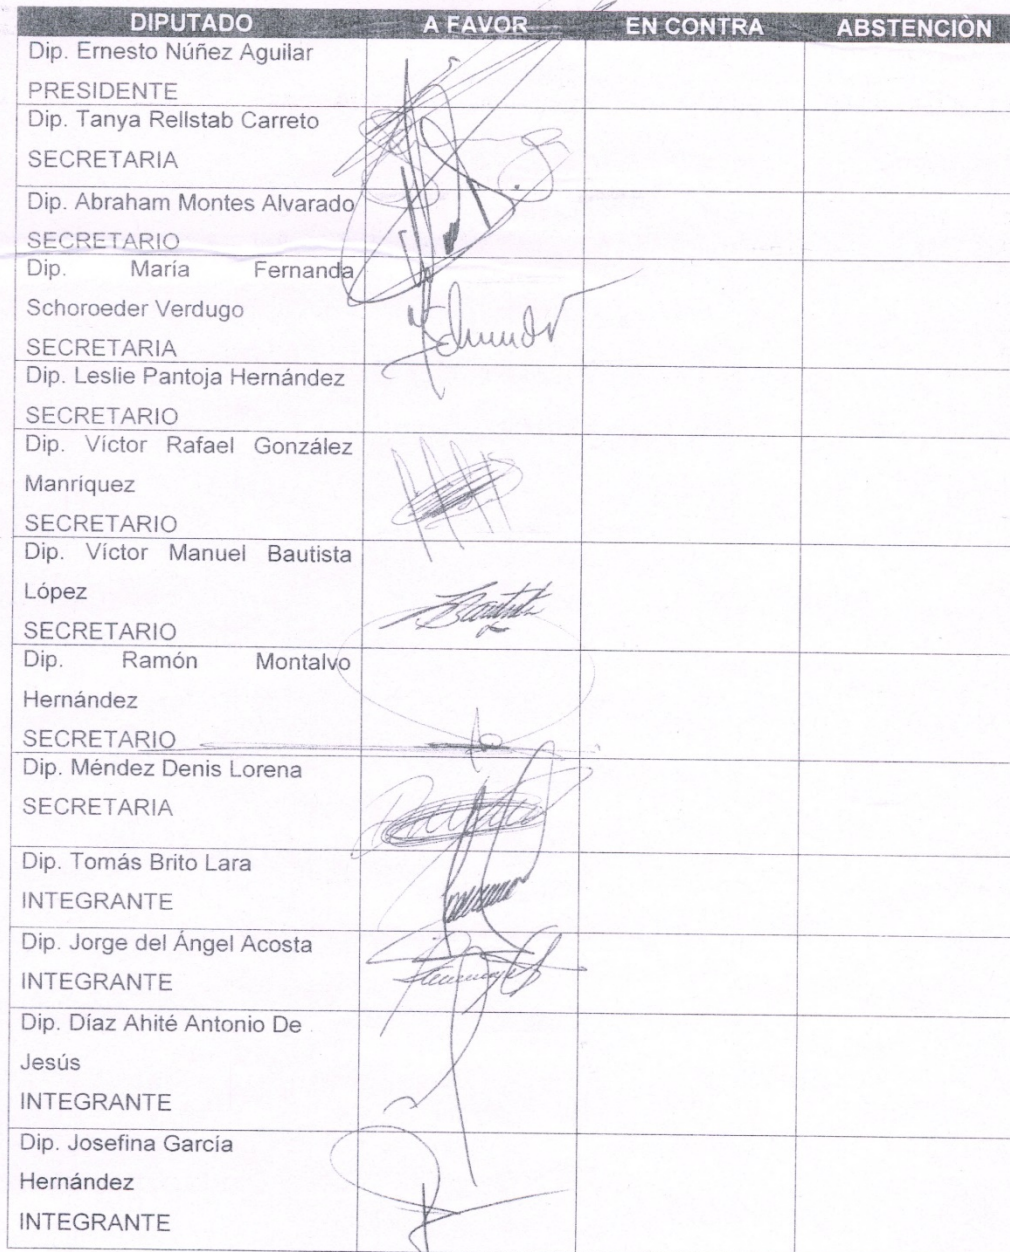 DIPUTADO A FAVOR EN CONTRA ABSTENCIÒN
Dip. Ernesto Núñez Aguilar
PRESIDENTE
Dip. Tanya Rellstab Carreto
SECRETARIA
Dip. Abraham Montes Alvarado
SECRETARIO
Dip. María Fernanda
Schoroeder Verdugo
SECRETARIA
Dip. Leslie Pantoja Hernández
SECRETARIO
Dip. Víctor Rafael González
Manríquez
SECRETARIO
Dip. Víctor Manuel Bautista
López
SECRETARIO
Dip. Ramón Montalvo
Hernández
SECRETARIO
Dip. Méndez Denis Lorena
SECRETARIA
Dip. Tomás Brito Lara
INTEGRANTE
Dip. Jorge del Ángel Acosta
INTEGRANTE
Dip. Díaz Ahité Antonio De
Jesús
INTEGRANTE
Dip. Josefina García
Hernández
INTEGRANTE